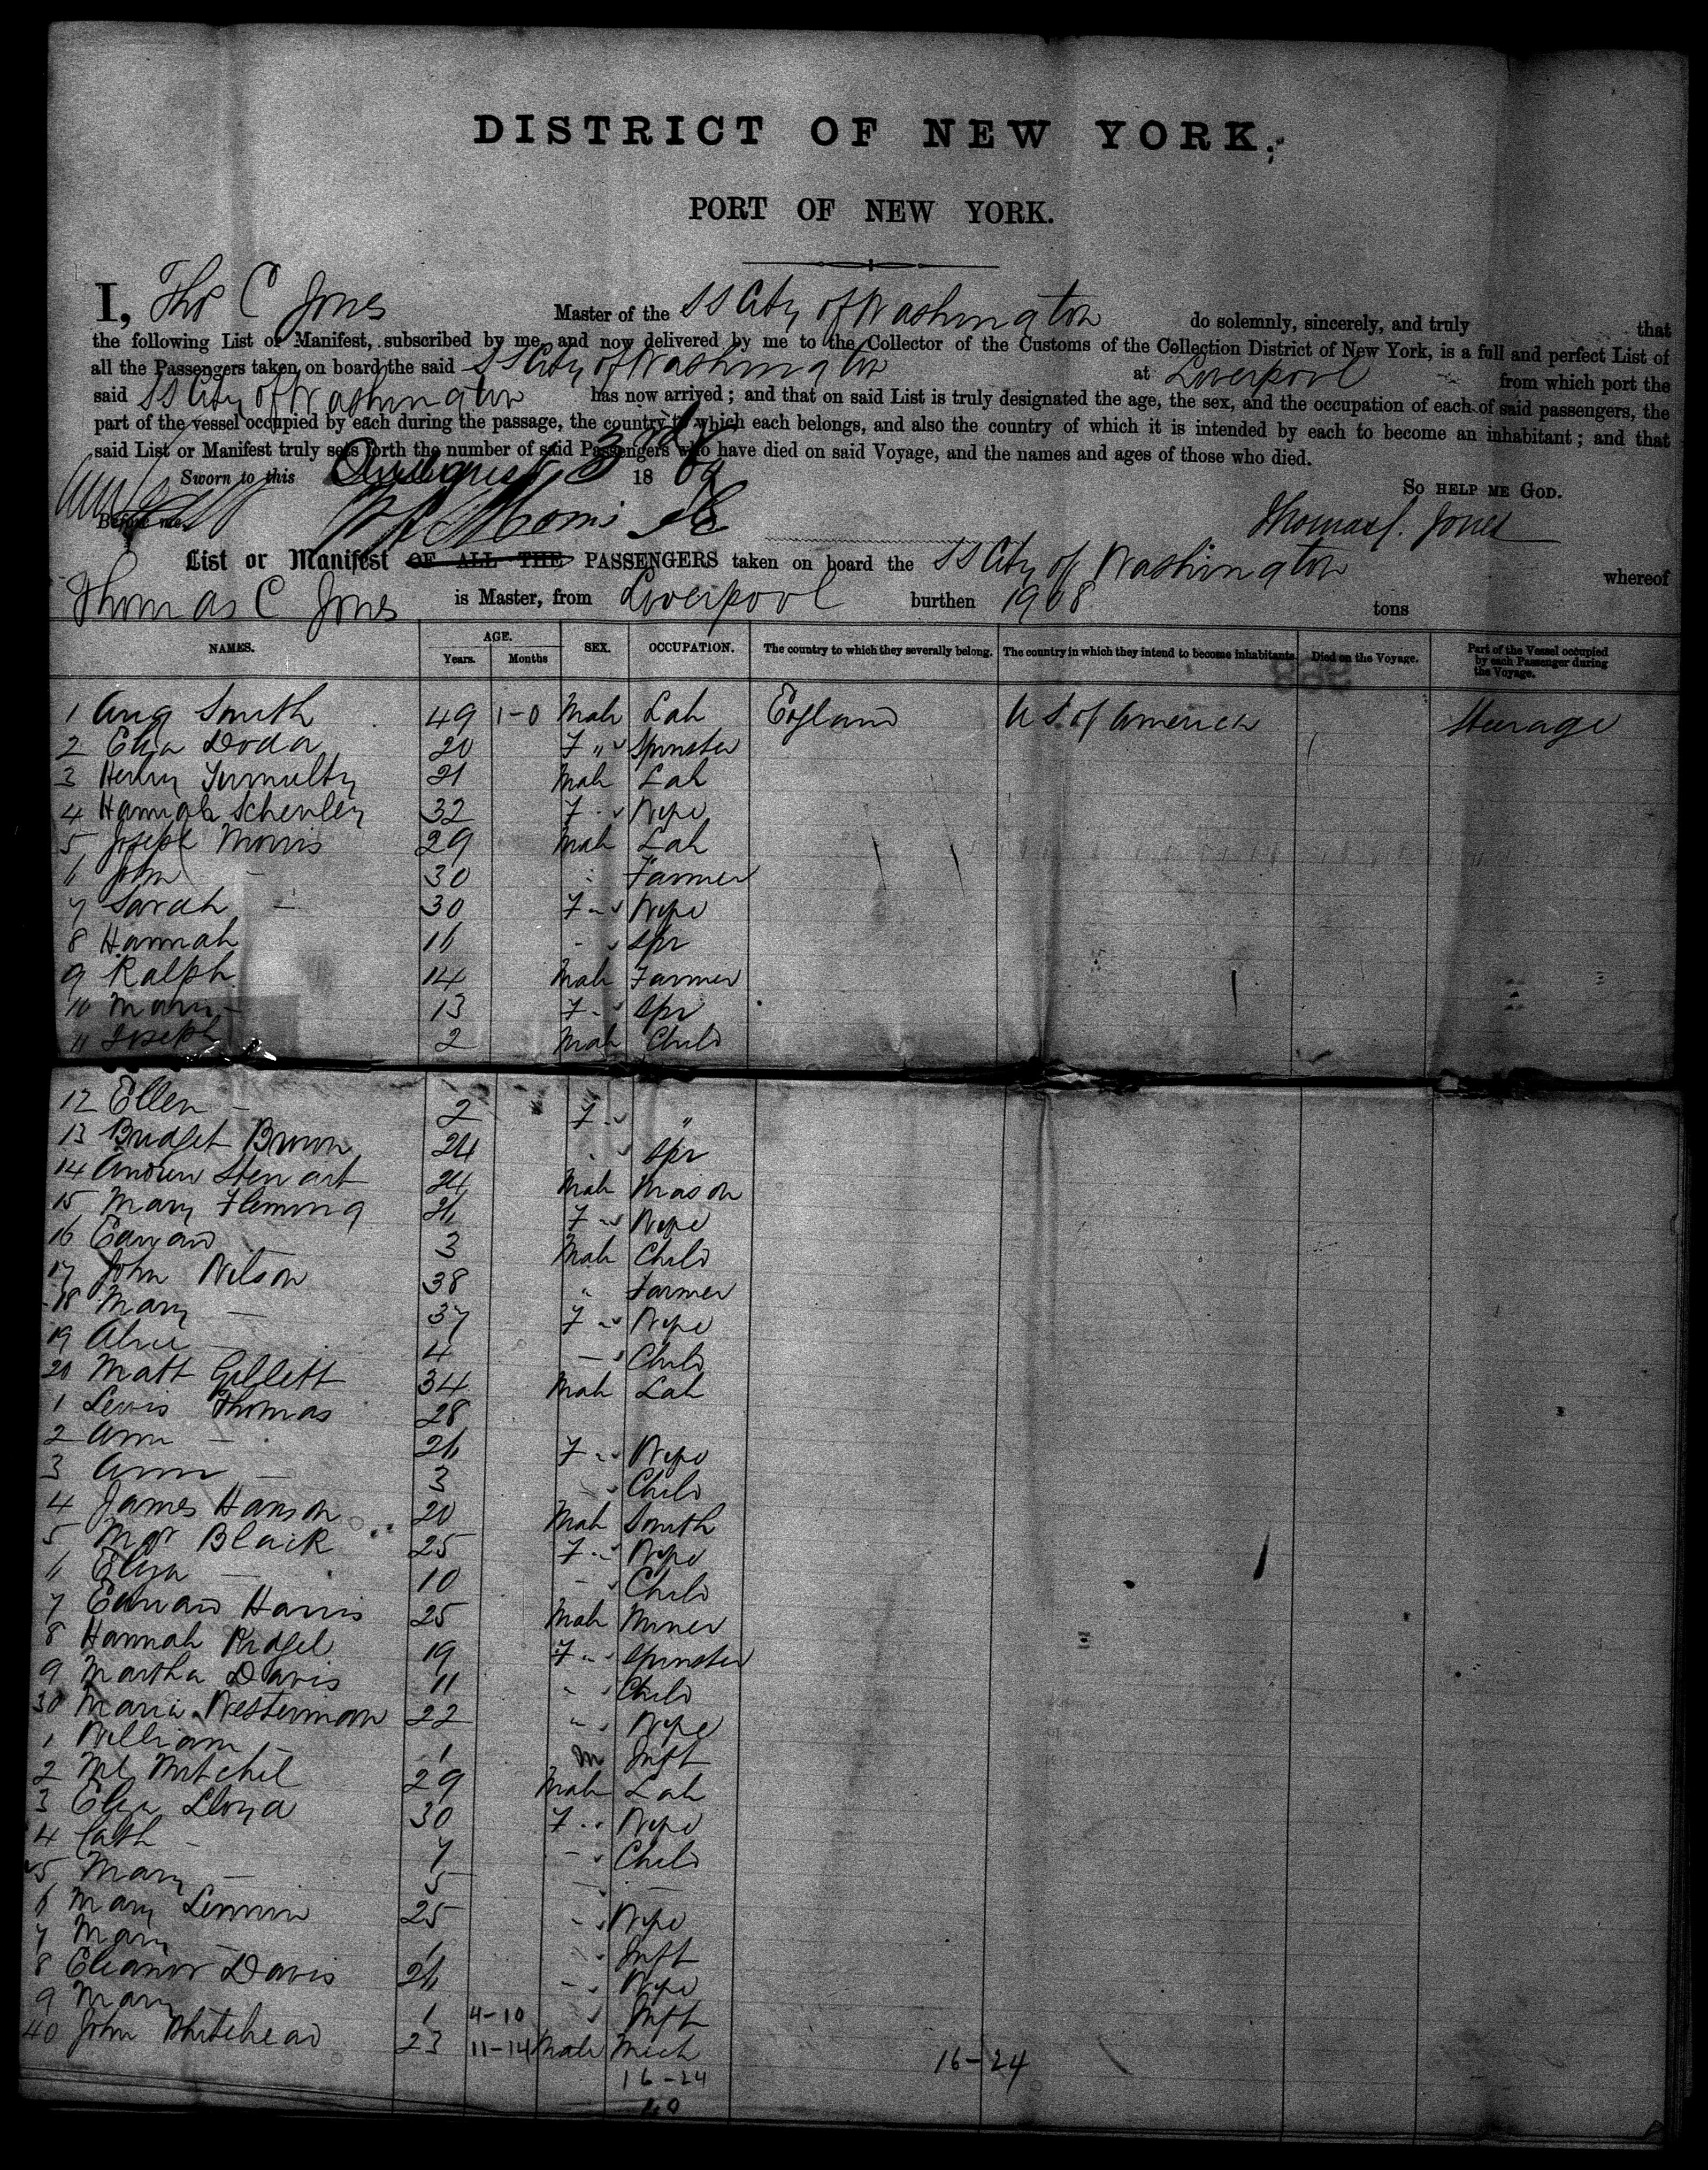 DISTRICT OF NEW YORK.
PORT OF NEW YORK.
I, Thos C Jones Master of the SS City of Washington do solemnly, sincerely, and truly that
the following List or Manifest, subscribed by me, and now delivered by me to the Collector of the Customs of the Collection District of New York, is a full and perfect List of
all the Passengers taken on board the said SS City of Washington at Liverpool from which port the
said SS City of Washington has now arrived; and that on said List is truly designated the age, the sex, and the occupation of each of said passengers, the
part of the vessel occupied by each during the passage, the country to which each belongs, and also the country of which it is intended by each to become an inhabitant; and that
said List or Manifest truly sets forth the number of said Passengers who have died on said Voyage, and the names and ages of those who died.
Sworn to this August 3rd 1869 SO HELP ME GOD.
Before me. Thomas C. Jones
List or Manifest OF ALL THE PASSENGERS taken on board the SS City of Washington whereof
Thomas C Jones is Master, from Liverpool burthen 1908 tons
NAMES. AGE. Years. Months SEX. OCCUPATION. The country to which they severally belong. The country in which they intend to become inhabitants. Died on the Voyage. Part of the Vessel occupied by each Passenger during the Voyage.
1 Aug Smith 49 1-0 Male Lab England U S of America Steerage
2 Eliza Dodd 20 F " Spinster
3 Henry Tumulty 21 Male Lab
4 Hannah Schenley 32 F " Wife
5 Joseph Morris 29 Male Lab
6 John - 30 " Farmer
7 Sarah - 30 F " Wife
8 Hannah 16 - Spr
9 Ralph 14 Male Farmer
10 Mary - 13 F - Spr
11 Joseph 2 Male Child
12 Ellen - 2 F - "
13 Bridget Brown 24 " Spr
14 Andrew Stewart 24 Male Mason
15 Mary Fleming 26 F " Wife
16 Edward 3 Male Child
17 John Wilson 38 " Farmer
18 Mary - 37 F " Wife
19 Alice - 4 - Child
20 Matt Gillett 34 Male Lab
1 Lewis Thomas 28
2 Ann - 26 F - Wife
3 Ann - 3 Child
4 James Hanson 20 Male Smith
5 Mgt Black 25 F - Wife
6 Eliza - 10 - Child
7 Edward Harris 25 Male Miner
8 Hannah 19 F - Spinster
9 Martha Davis 11 - Child
30 Maria Westerman 22 " Wife
1 William - 1 M Inft
2 Ml Mitchel 29 Male Lab
3 Eliza Lloyd 30 F " Wife
4 Cath - 7 - Child
5 Mary - 5 - -
6 Mary Lennon 25 - Wife
7 Mary - 1 " Inft
8 Eleanor Davis 26 - Wife
9 Mary 1 4-10 Inft
40 John Whitehead 23 11-14 Male Mech
16-24 16-24
40